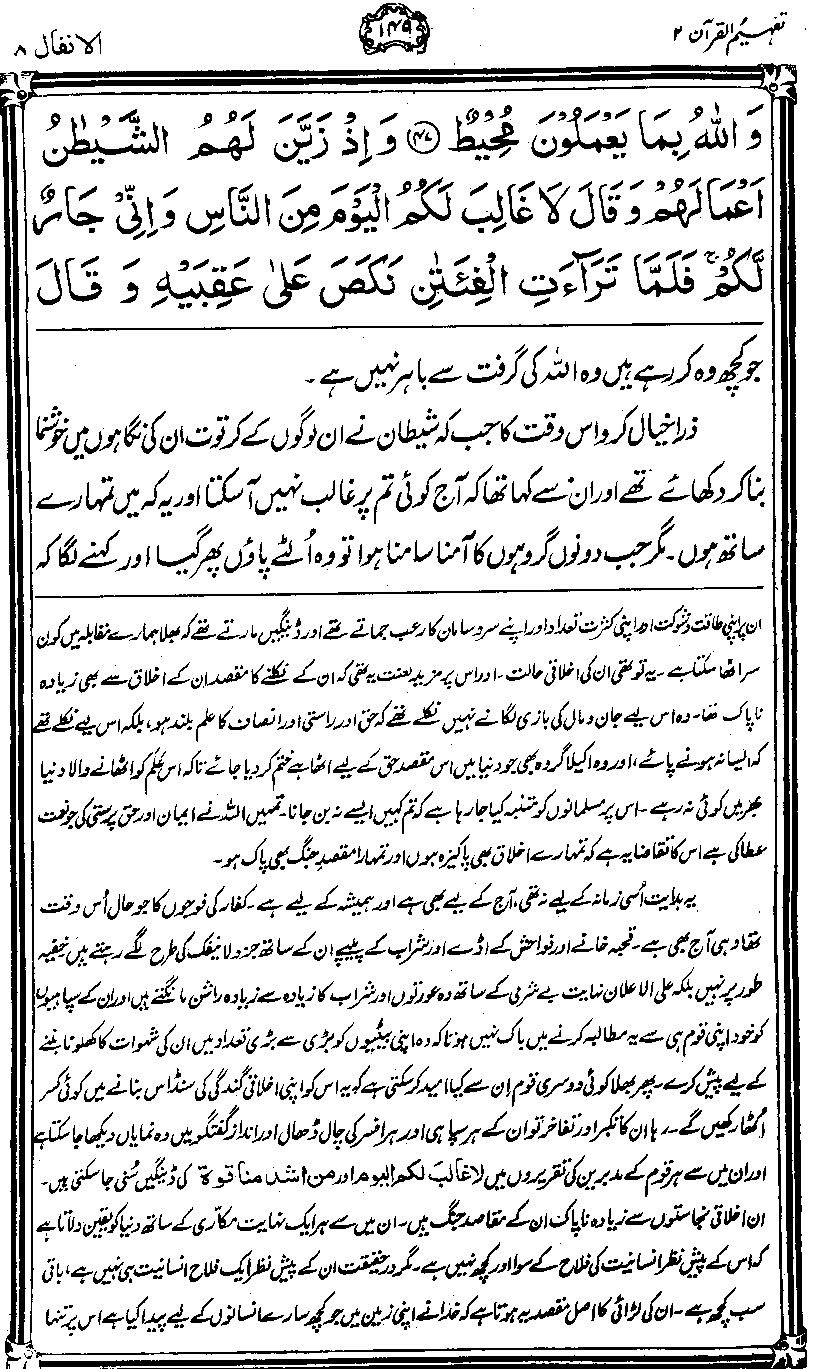 تفہیم القرآن ۲
۱۴۹
الانفال ۸
وَاللّٰهُ بِمَا يَعْمَلُوْنَ مُحِيْطٌ ﴿۴۷﴾ وَاِذْ زَيَّنَ لَهُمُ الشَّيْطٰنُ
اَعْمَالَهُمْ وَقَالَ لَا غَالِبَ لَكُمُ الْيَوْمَ مِنَ النَّاسِ وَاِنِّيْ جَارٌ
لَّكُمْ ۚ فَلَمَّا تَرَآءَتِ الْفِئَتٰنِ نَكَصَ عَلٰى عَقِبَيْهِ وَ قَالَ
جو کچھ وہ کر رہے ہیں وہ اللہ کی گرفت سے باہر نہیں ہے۔
ذرا خیال کرو اس وقت کا جب کہ شیطان نے ان لوگوں کے کرتوت ان کی نگاہوں میں خوشنما
بنا کر دکھائے تھے اور ان سے کہا تھا کہ آج کوئی تم پر غالب نہیں آسکتا اور یہ کہ میں تمہارے
ساتھ ہوں۔ مگر جب دونوں گروہوں کا آمنا سامنا ہوا تو وہ اُلٹے پاؤں پھر گیا اور کہنے لگا کہ
ان پر اپنی طاقت و شوکت اور اپنی کثرت تعداد اور اپنے سروسامان کا رعب جماتے تھے اور ڈینگیں مارتے تھے کہ بھلا ہمارے مقابلہ میں کون
سر اٹھا سکتا ہے۔ یہ تو تھی ان کی اخلاقی حالت۔ اور اس پر مزید لعنت یہ تھی کہ ان کے نکلنے کا مقصد ان کے اخلاق سے بھی زیادہ
ناپاک تھا۔ وہ اس لیے جان و مال کی بازی لگانے نہیں نکلے تھے کہ حق اور راستی اور انصاف کا علم بلند ہو، بلکہ اس لیے نکلے تھے
کہ ایسا نہ ہونے پائے، اور وہ اکیلا گروہ بھی جو دنیا میں اس مقصد حق کے لیے اٹھا ہے ختم کر دیا جائے تاکہ اس عَلَم کو اٹھانے والا دنیا
بھر میں کوئی نہ رہے۔ اس پر مسلمانوں کو متنبہ کیا جا رہا ہے کہ تم کہیں ایسے نہ بن جانا۔ تمہیں اللہ نے ایمان اور حق پرستی کی جو نعمت
عطا کی ہے اس کا تقاضا یہ ہے کہ تمہارے اخلاق بھی پاکیزہ ہوں اور تمہارا مقصدِ جنگ بھی پاک ہو۔
یہ ہدایت اُسی زمانہ کے لیے نہ تھی، آج کے لیے بھی ہے اور ہمیشہ کے لیے ہے۔ کفار کی فوجوں کا جو حال اُس وقت
تھا وہی آج بھی ہے۔ قحبہ خانے اور فواحش کے اڈے اور شراب کے پیپے ان کے ساتھ جزو لاینفک کی طرح لگے رہتے ہیں۔ خفیہ
طور پر نہیں بلکہ علی الاعلان نہایت بے شرمی کے ساتھ وہ عورتوں اور شراب کا زیادہ سے زیادہ راشن مانگتے ہیں اور ان کے سپاہیوں
کو خود اپنی قوم ہی سے یہ مطالبہ کرنے میں باک نہیں ہوتا کہ وہ اپنی بیٹیوں کو بڑی سے بڑی تعداد میں ان کی شہوات کا کھلونا بننے
کے لیے پیش کرے۔ پھر بھلا کوئی دوسری قوم ان سے کیا امید کر سکتی ہے کہ یہ اس کو اپنی اخلاقی گندگی کی سنڈاس بنانے میں کوئی کسر
اُٹھا رکھیں گے۔ رہا ان کا تکبر اور تفاخر تو ان کے ہر سپاہی اور ہر افسر کی چال ڈھال اور انداز گفتگو میں وہ نمایاں دیکھا جا سکتا ہے
اور ان میں سے ہر قوم کے مدبرین کی تقریروں میں لا غالب لکم الیوم اور من اشد منا قوۃ کی ڈینگیں سُنی جا سکتی ہیں۔
ان اخلاقی نجاستوں سے زیادہ ناپاک ان کے مقاصد جنگ ہیں۔ ان میں سے ہر ایک نہایت مکاری کے ساتھ دنیا کو یقین دلاتا ہے
کہ اس کے پیش نظر انسانیت کی فلاح کے سوا اور کچھ نہیں ہے۔ مگر درحقیقت ان کے پیش نظر ایک فلاح انسانیت ہی نہیں ہے، باقی
سب کچھ ہے۔ ان کی لڑائی کا اصل مقصد یہ ہوتا ہے کہ خدا نے اپنی زمین میں جو کچھ سارے انسانوں کے لیے پیدا کیا ہے اس پر تنہا